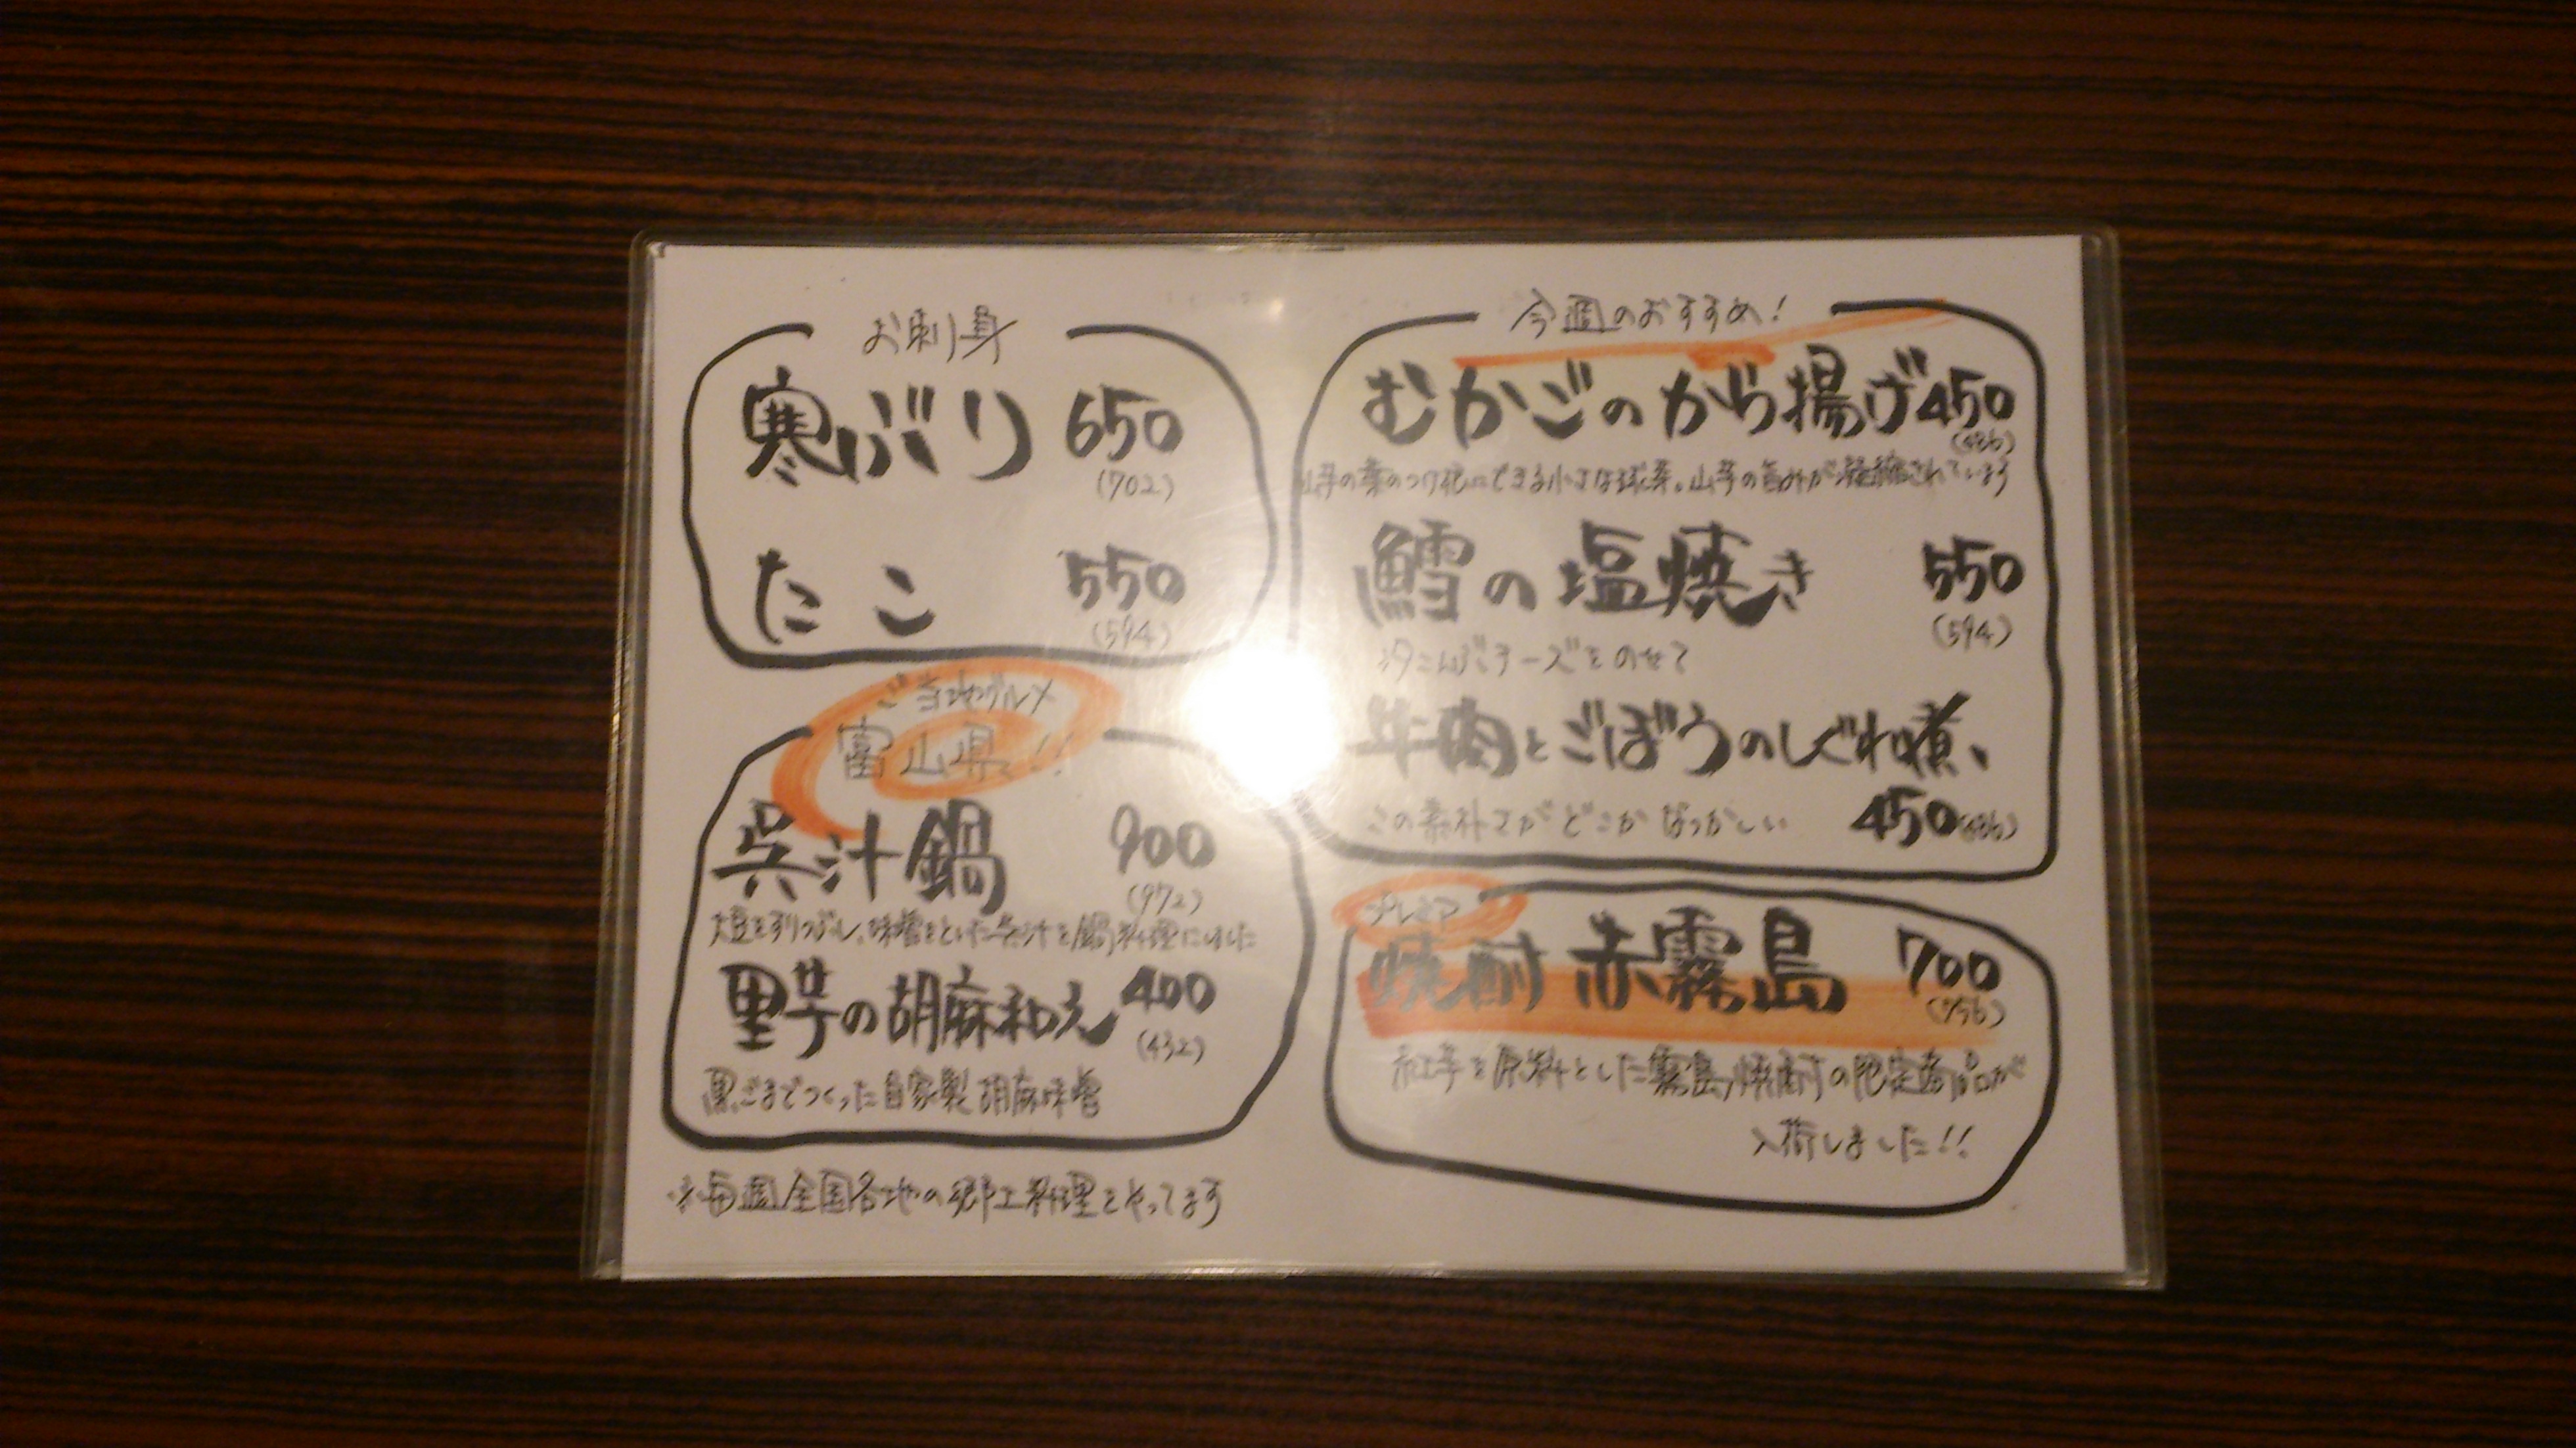 お刺身
寒ぶり 650
(702)
たこ 550
(594)
ご当地グルメ
富山県!!
呉汁鍋 900
(972)
大豆をすりつぶし、味噌をといた呉汁を鍋料理にしました
里芋の胡麻和え 400
(432)
黒ごまでつくった自家製胡麻味噌
※毎週全国各地の郷土料理をやってます
今週のおすすめ!
むかごのから揚げ 450
(486)
山芋の葉のつけ根にできる小さな球芽。山芋の旨みが凝縮されています
鱈の塩焼き 550
(594)
チーズをのせて
牛肉とごぼうのしぐれ煮、
この素朴さがどこかなつかしい 450(486)
プレミア
焼酎 赤霧島 700
(756)
紅芋を原料とした霧島焼酎の限定商品が
入荷しました!!